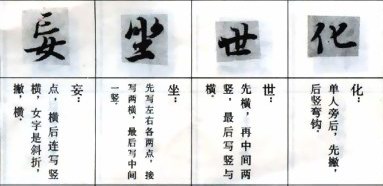 化
化：
单人旁后，先撇，
后竖弯钩。
世
世：
先横，再中间两
竖，最后写竖与
横。
坐
坐：
先写左右各两点，接
写两横，最后写中间
一竖。
妄
妄：
点，横后连写竖
横，女字是斜折，
撇，横。